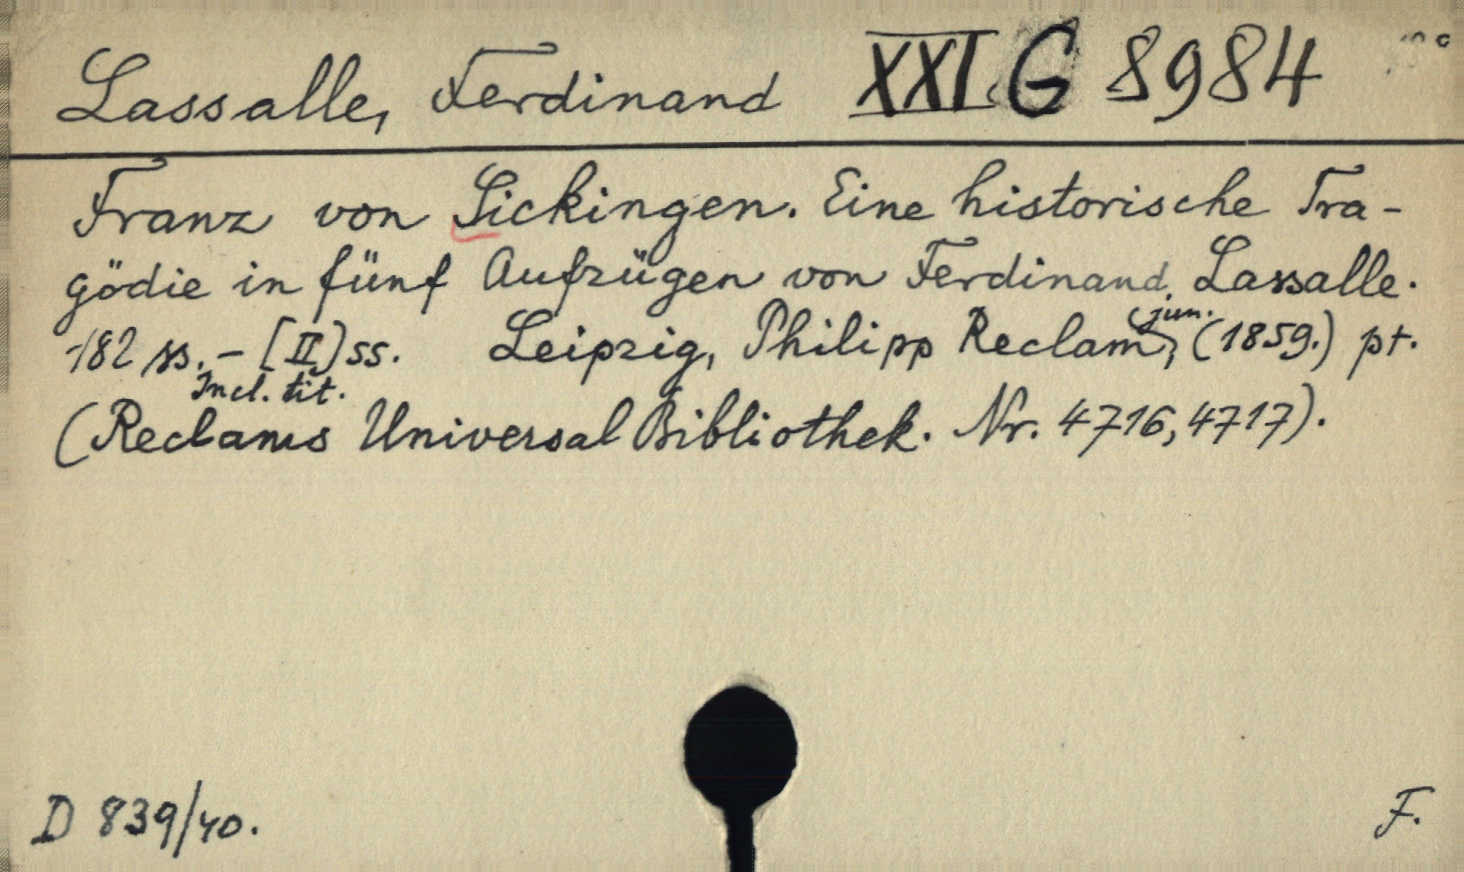 Lassalle, Ferdinand XXI G 8984
Franz von Sickingen. Eine historische Tra-
gödie in fünf Aufzügen von Ferdinand Lassalle.
182 ss. - [II] ss. Leipzig, Philipp Reclam jun., (1859.) pt.
Incl. tit.
(Reclams Universal Bibliothek. Nr. 4716, 4717).
D 839/40. F.